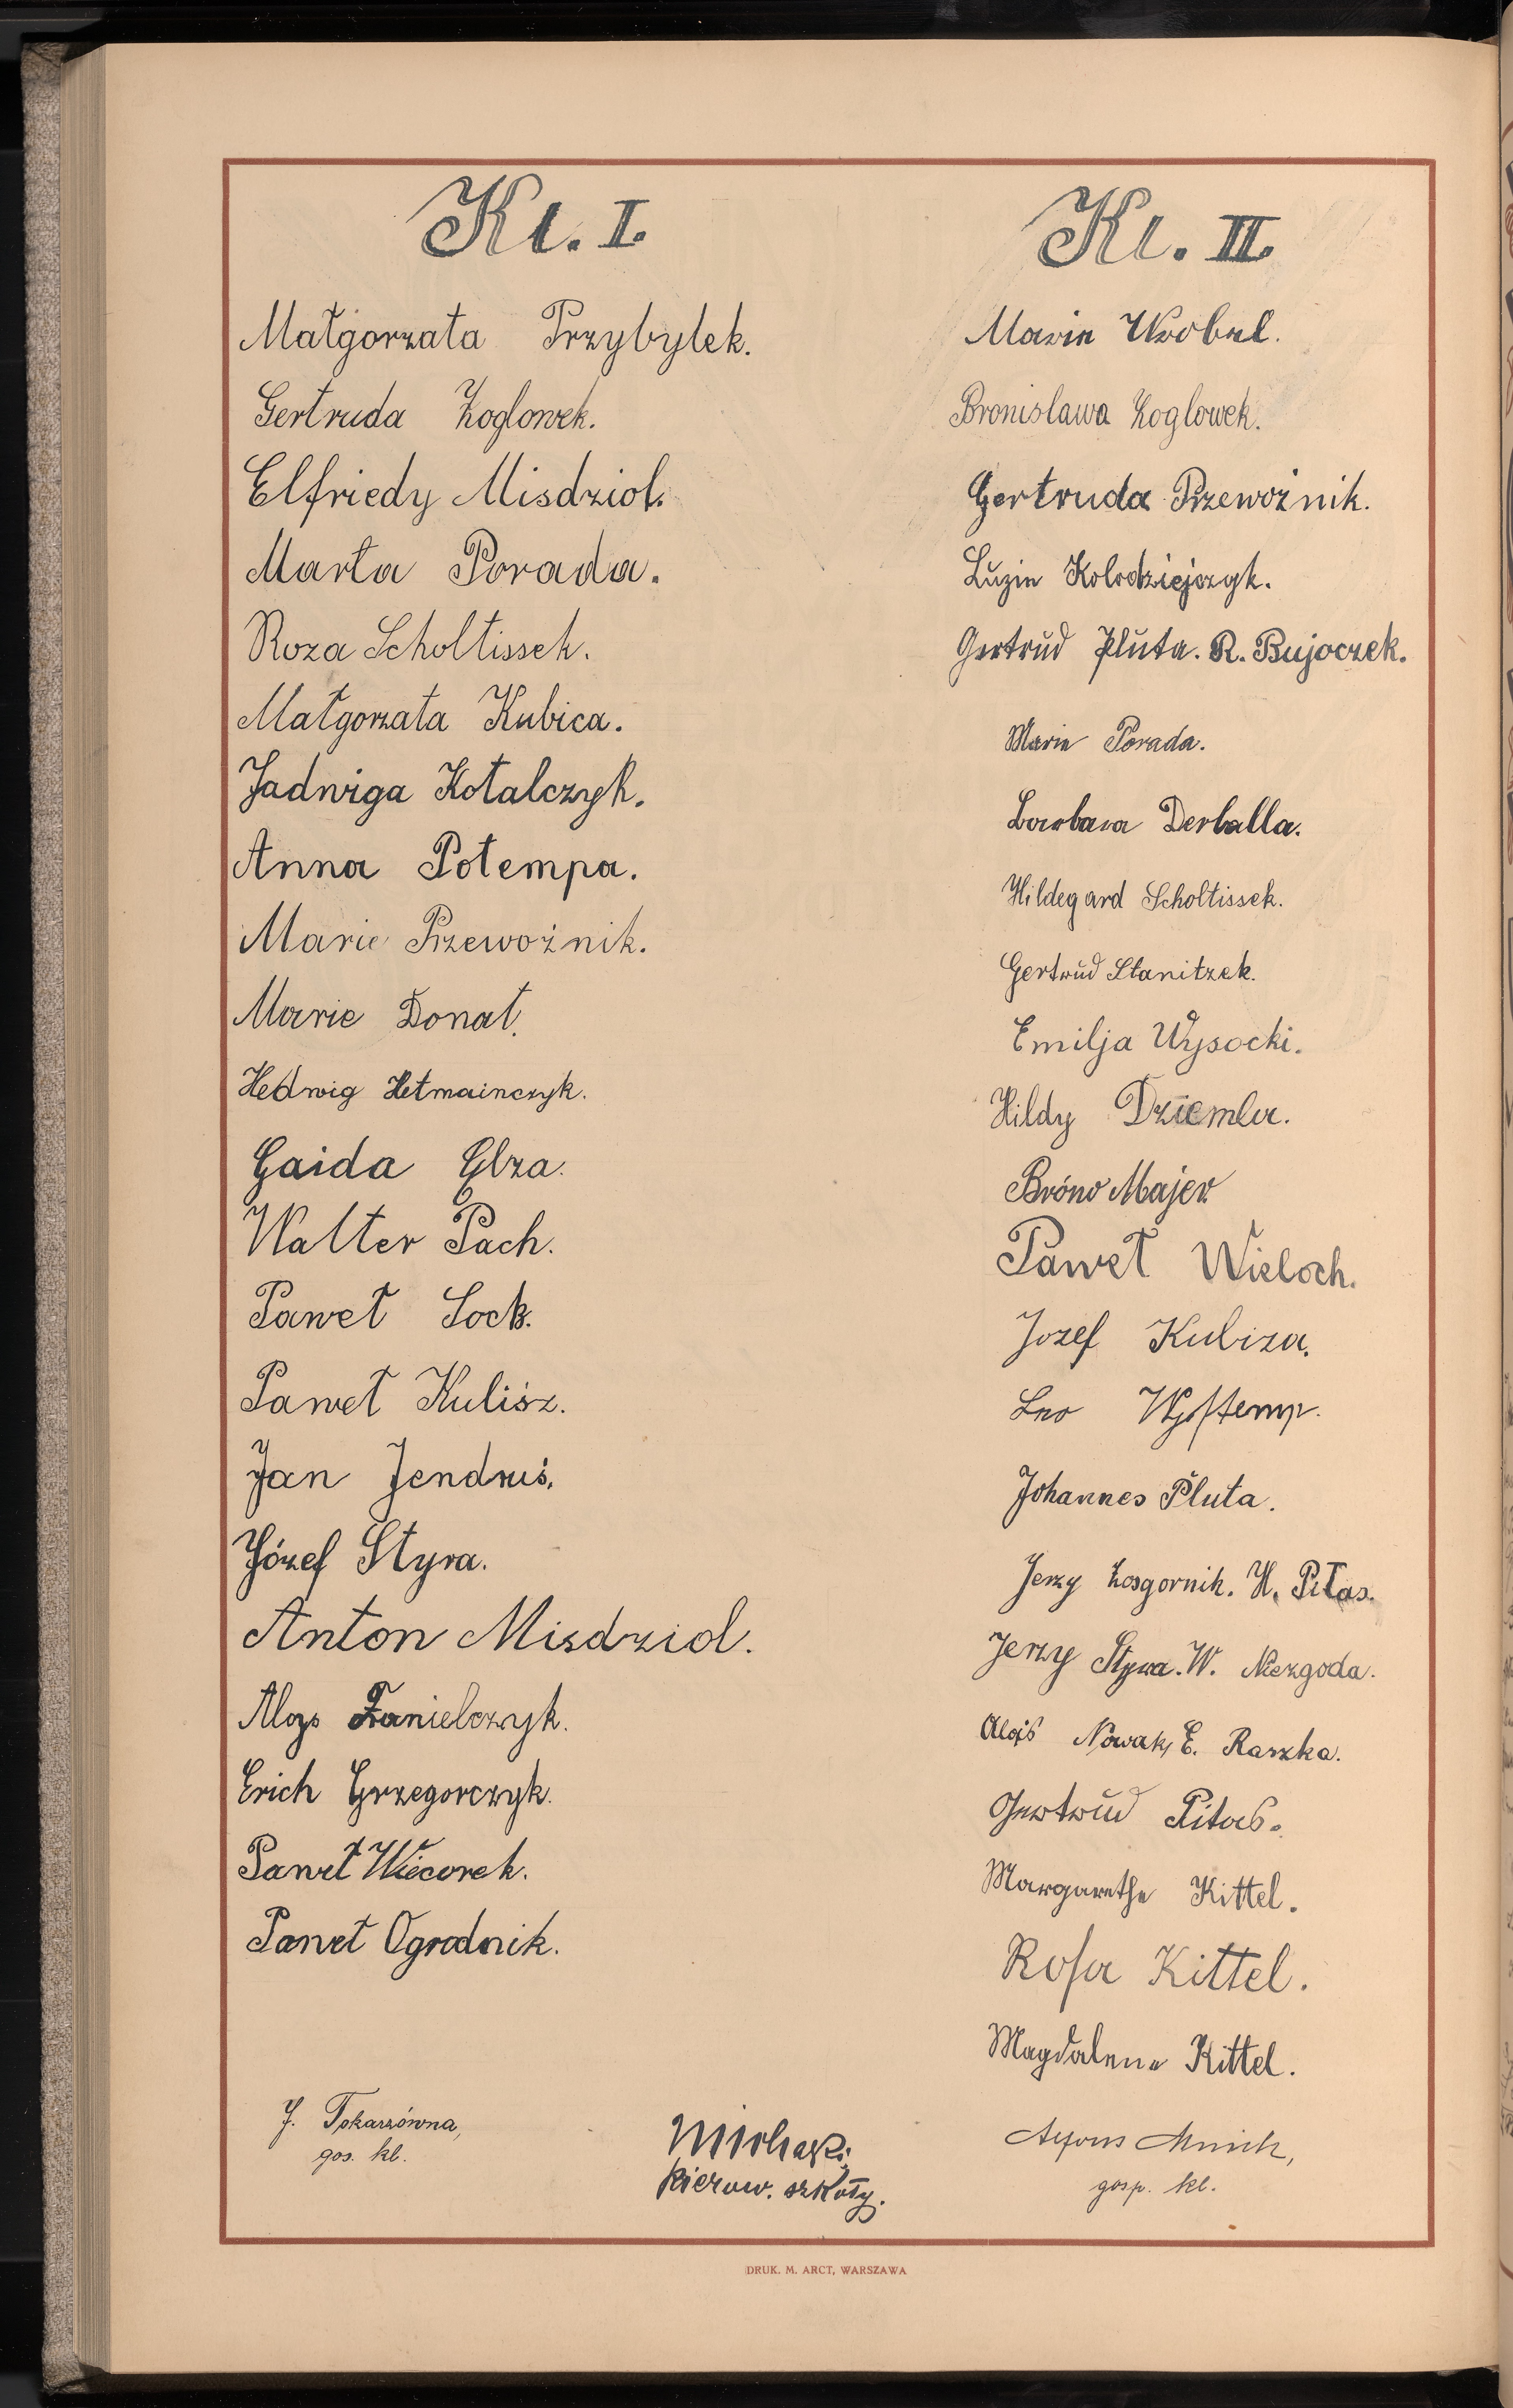 Kl. I.
Małgorzata Przybyłek.
Gertruda Zoglowek.
Elfriedy Misdziol.
Marta Porada.
Roza Scholtissek.
Małgorzata Kubica.
Jadwiga Kotalczyk.
Anna Potempa.
Marie Przewoźnik.
Marie Donat.
Hedwig Hetmainczyk.
Gaida Elza.
Walter Pach.
Paweł Sock.
Paweł Kulisz.
Jan Jendruś.
Józef Styra.
Anton Misdziol.
Aloys Danielczyk.
Erich Grzegorczyk.
Paweł Wiecorek.
Paweł Ogrodnik.
J. Tokarzówna,
gos. kl.
Kl. II.
Marie Wrobel.
Bronislawa Zoglowek.
Gertruda Przewoźnik.
Luzie Kolodziejczyk.
Gertrud Pluta. R. Bujoczek.
Marie Porada.
Barbara Derballa.
Hildegard Scholtissek.
Gertrud Stanitzek.
Emilja Wysocki.
Hildy Dziemla.
Bróno Majer.
Paweł Wieloch.
Jozef Kubiza.
Leo
Johannes Pluta.
Jerzy Zosgornik. H. Piłas.
Jerzy Styra. W. Niezgoda.
Alojs Nowak, E. Raszka.
Gertrud Pitas.
Margarethe Kittel.
Rosa Kittel.
Magdalena Kittel.
Alfons Mnich,
gosp. kl.
Michalski
kierow. szkoły.
DRUK. M. ARCT, WARSZAWA